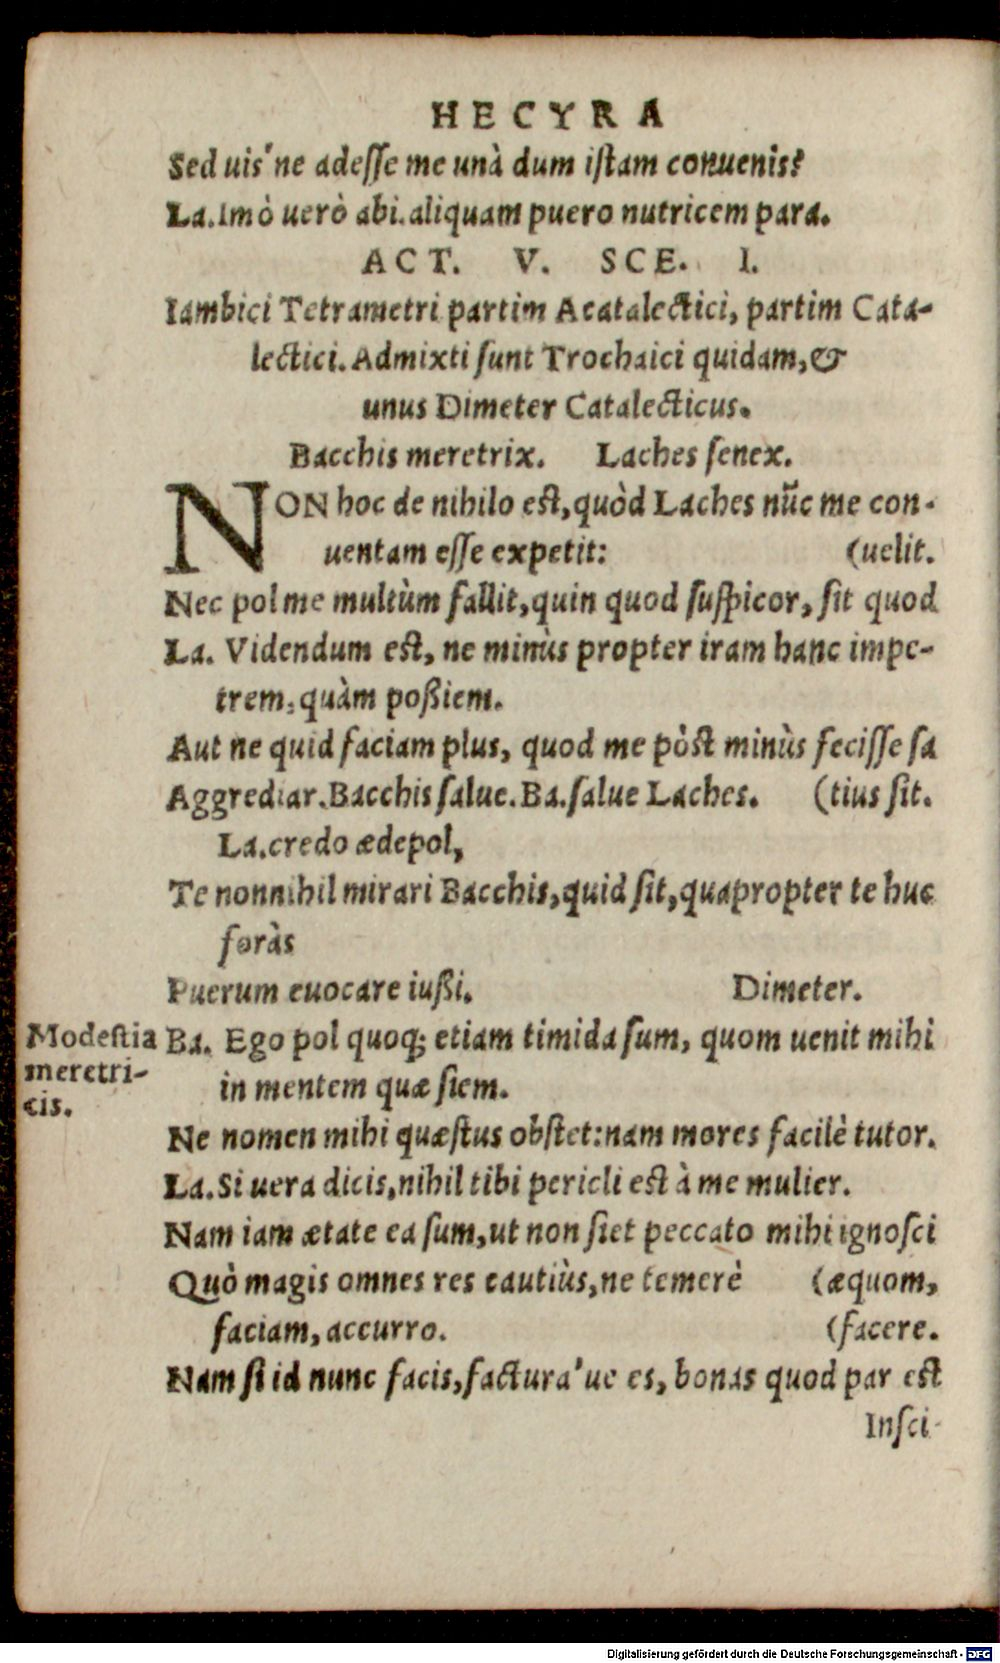 HECYRA
Sed uis'ne adesse me unà dum istam conuenis?
La. Imò uerò abi. aliquam puero nutricem para.
ACT. V. SCE. I.
Iambici Tetrametri partim Acatalectici, partim Cata-
lectici. Admixti sunt Trochaici quidam, &
unus Dimeter Catalecticus.
Bacchis meretrix. Laches senex.
NON hoc de nihilo est, quòd Laches nũc me con-
uentam esse expetit: (uelit.
Nec pol me multùm fallit, quin quod suspicor, sit quod
La. Videndum est, ne minùs propter iram hanc impe-
trem, quàm poßiem.
Aut ne quid faciam plus, quod me pòst minùs fecisse sa
Aggrediar. Bacchis salue. Ba. salue Laches. (tius sit.
La. credo ædepol,
Te nonnihil mirari Bacchis, quid sit, quapropter te huc
foràs
Puerum euocare iußi. Dimeter.
Modestia
meretri-
cis.
Ba. Ego pol quoq; etiam timida sum, quom uenit mihi
in mentem quæ siem.
Ne nomen mihi quæstus obstet: nam mores facilè tutor.
La. Si uera dicis, nihil tibi pericli est à me mulier.
Nam iam ætate ea sum, ut non siet peccato mihi ignosci
Quò magis omnes res cautiùs, ne temerè (æquom,
faciam, accurro. (facere.
Nam si id nunc facis, factura'ue es, bonas quod par est
Insci-
Digitalisierung gefördert durch die Deutsche Forschungsgemeinschaft - DFG